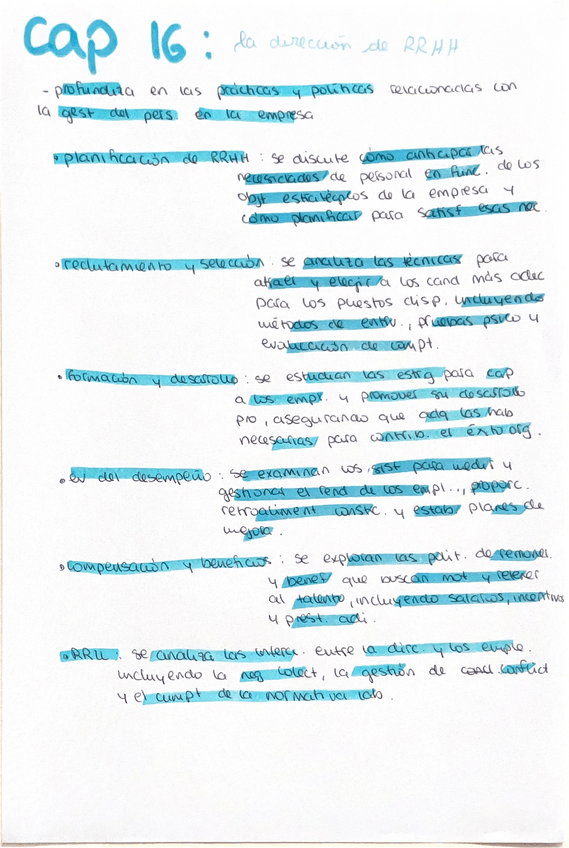 cap 16: la dirección de RRHH
- profundiza en las prácticas y políticas relacionadas con
la gest del pers. en la empresa
• planificación de RRHH : se discute cómo anticipar las
necesidades de personal en func. de los
objt estratégicos de la empresa y
cómo planificar para satisf esas nec.
• reclutamiento y selección : se analiza las técnicas para
atraer y elegir a los cand más adec
para los puestos disp, incluyendo
métodos de entrv., pruebas psico y
evaluación de compt.
• formación y desarrollo : se estudian las estrg para cap
a los empr. y promover su desarrollo
pro, asegurando que adq las hab
necesarias para contrib. el éxito org.
• ev del desempeño : se examinan los sist para medir y
gestionar el rend de los empl.., proporc.
retroaliment constc. y estab planes de
mejora.
• compensación y beneficios : se exploran las polit. de remoner.
y benef que buscan mot y retener
al talento, incluyendo salarios, incentivos
y prest. adi.
• RRLL : se analiza las interc. entre la dirc. y los emple.
incluyendo la neg colect, la gestión de conflict
y el cumpt de la normativa lab.